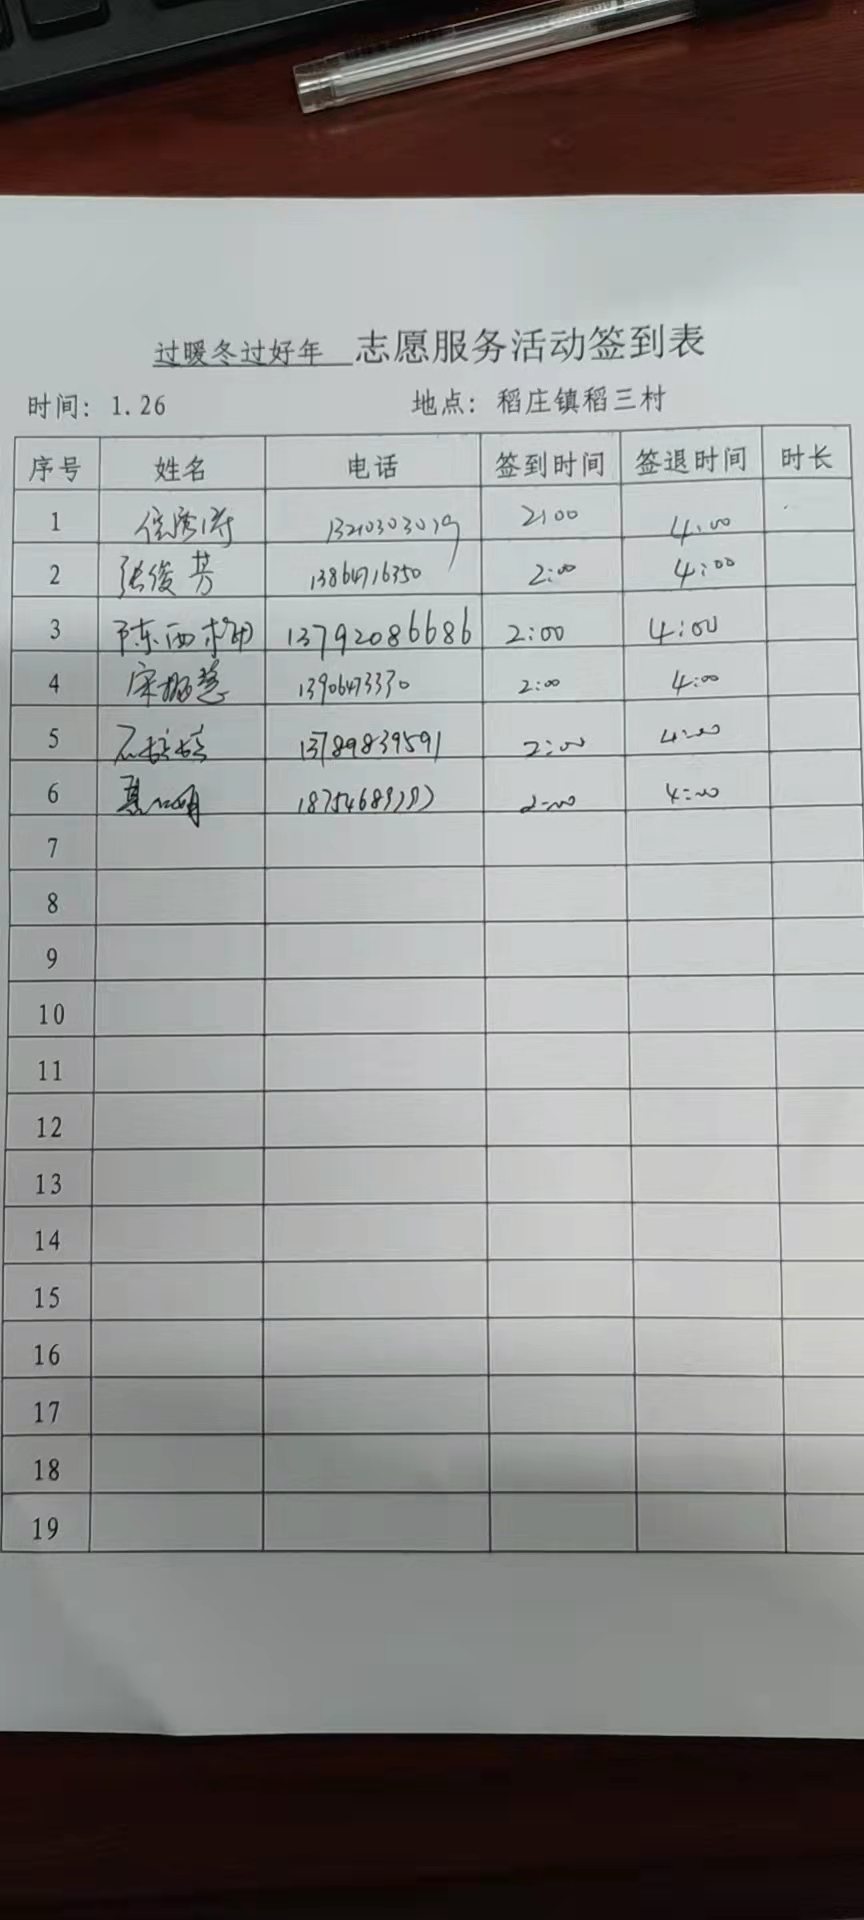 过暖冬过好年 志愿服务活动签到表
时间: 1.26 地点: 稻庄镇稻三村
序号 姓名 电话 签到时间 签退时间 时长
1 13210303019 2:00 4:00
2 张俊芳 13864716350 2:00 4:00
3 陈西 13792086686 2:00 4:00
4 宋 13906473370 2:00 4:00
5 石 13789839591 2:00 4:00
6 2:00 4:00
7
8
9
10
11
12
13
14
15
16
17
18
19